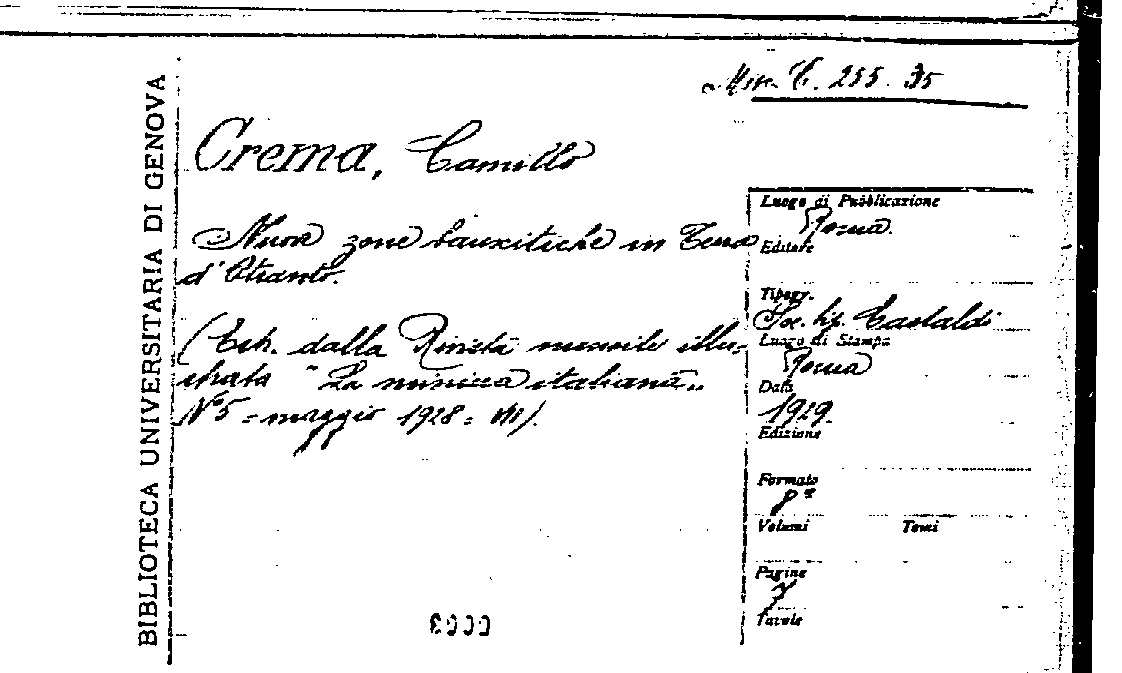 BIBLIOTECA UNIVERSITARIA DI GENOVA
Misc. C. 255. 35
Crema, Camillo
Nuove zone bauxitiche in Terra
d'Otranto.
(Estr. dalla Rivista mensile illu=
strata "La miniera italiana„
N° 5 = maggio 1928 = VI).
Luogo di Pubblicazione
Roma.
Editore
Tipogr.
Soc. tip. Castaldi
Luogo di Stampa
Roma
Data
1929.
Edizione
Formato
8°
Volumi Tomi
Pagine
7
Tavole